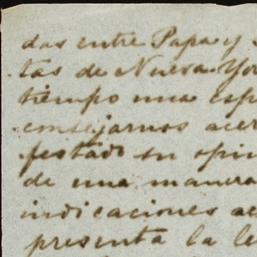 das entre Papa y
tas de Nueva Yo
tiempo una esp
consejarnos acer
festado su opin
de una manera
indicaciones ac
presenta la le